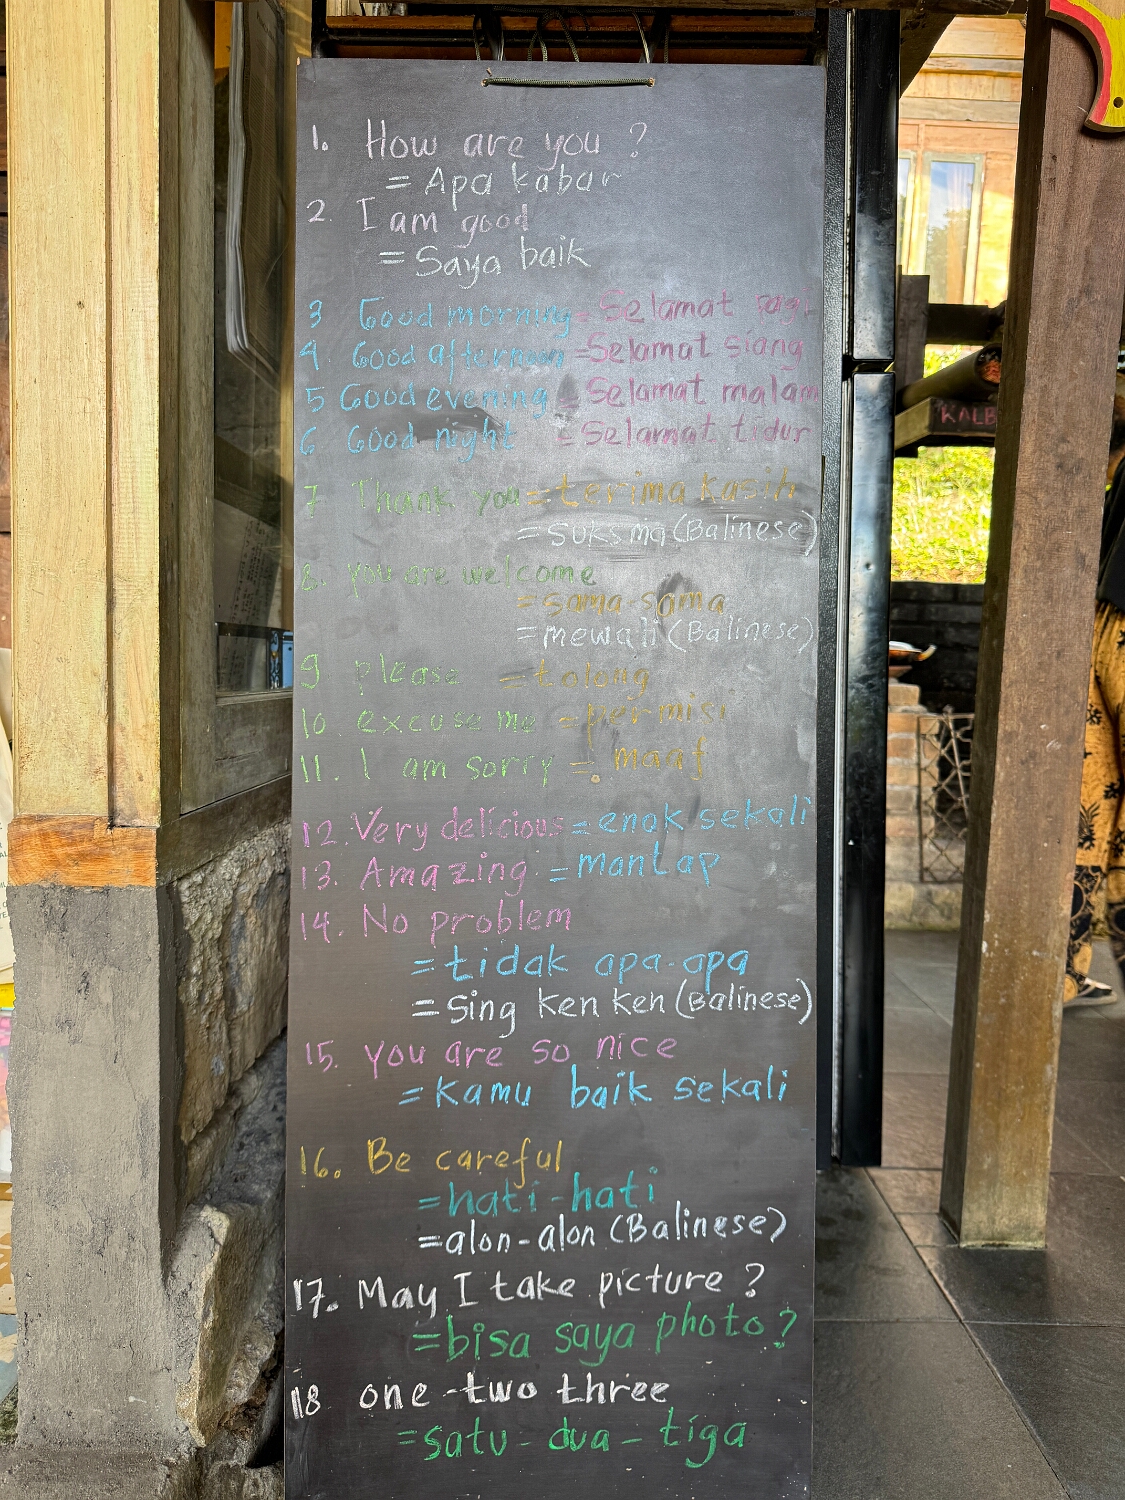 1. How are you ?
= Apa kabar
2. I am good
= Saya baik
3 Good morning = Selamat pagi
4. Good afternoon = Selamat siang
5 Good evening = Selamat malam
6 Good night = Selamat tidur
7 Thank you = terima kasih
= suksma (Balinese)
8. you are welcome
= sama-sama
= mewali (Balinese)
9 please = tolong
10. excuse me = permisi
11. I am sorry = maaf
12. Very delicious = enak sekali
13. Amazing. = mantap
14. No problem
= tidak apa-apa
= Sing ken ken (Balinese)
15. you are so nice
= kamu baik sekali
16. Be careful
= hati-hati
= alon-alon (Balinese)
17. May I take picture ?
= bisa saya photo ?
18 one-two three
= satu - dua - tiga
KALB